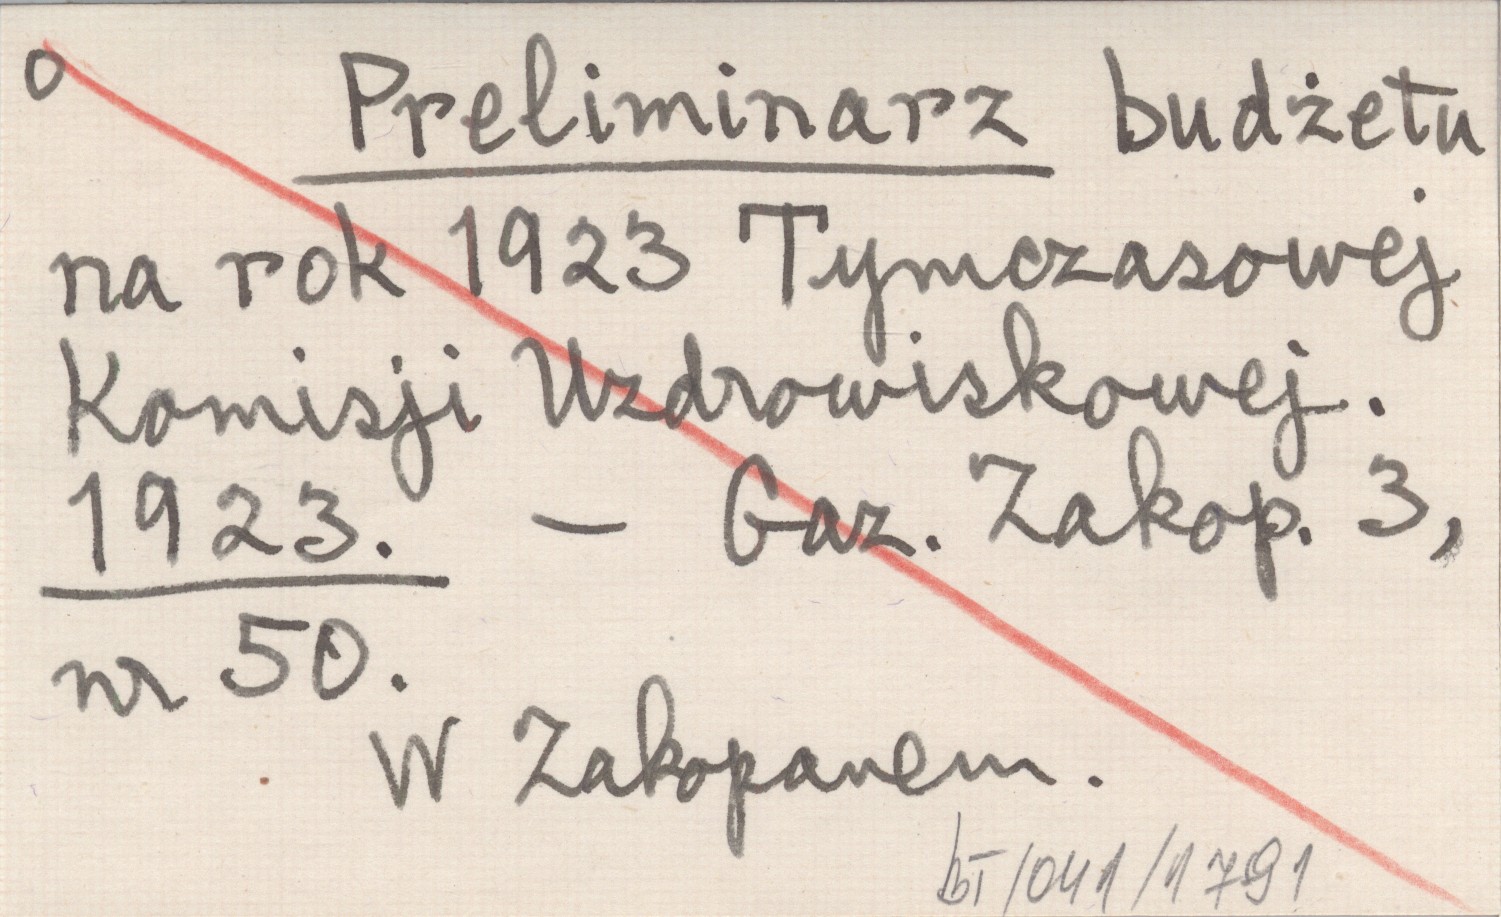 o Preliminarz budżetu
na rok 1923 Tymczasowej
Komisji Uzdrowiskowej.
1923. — Gaz. Zakop. 3,
nr 50.
W Zakopanem.
bT/041/1791